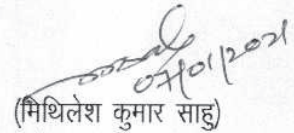 07/01/2021
(मिथिलेश कुमार साहु)